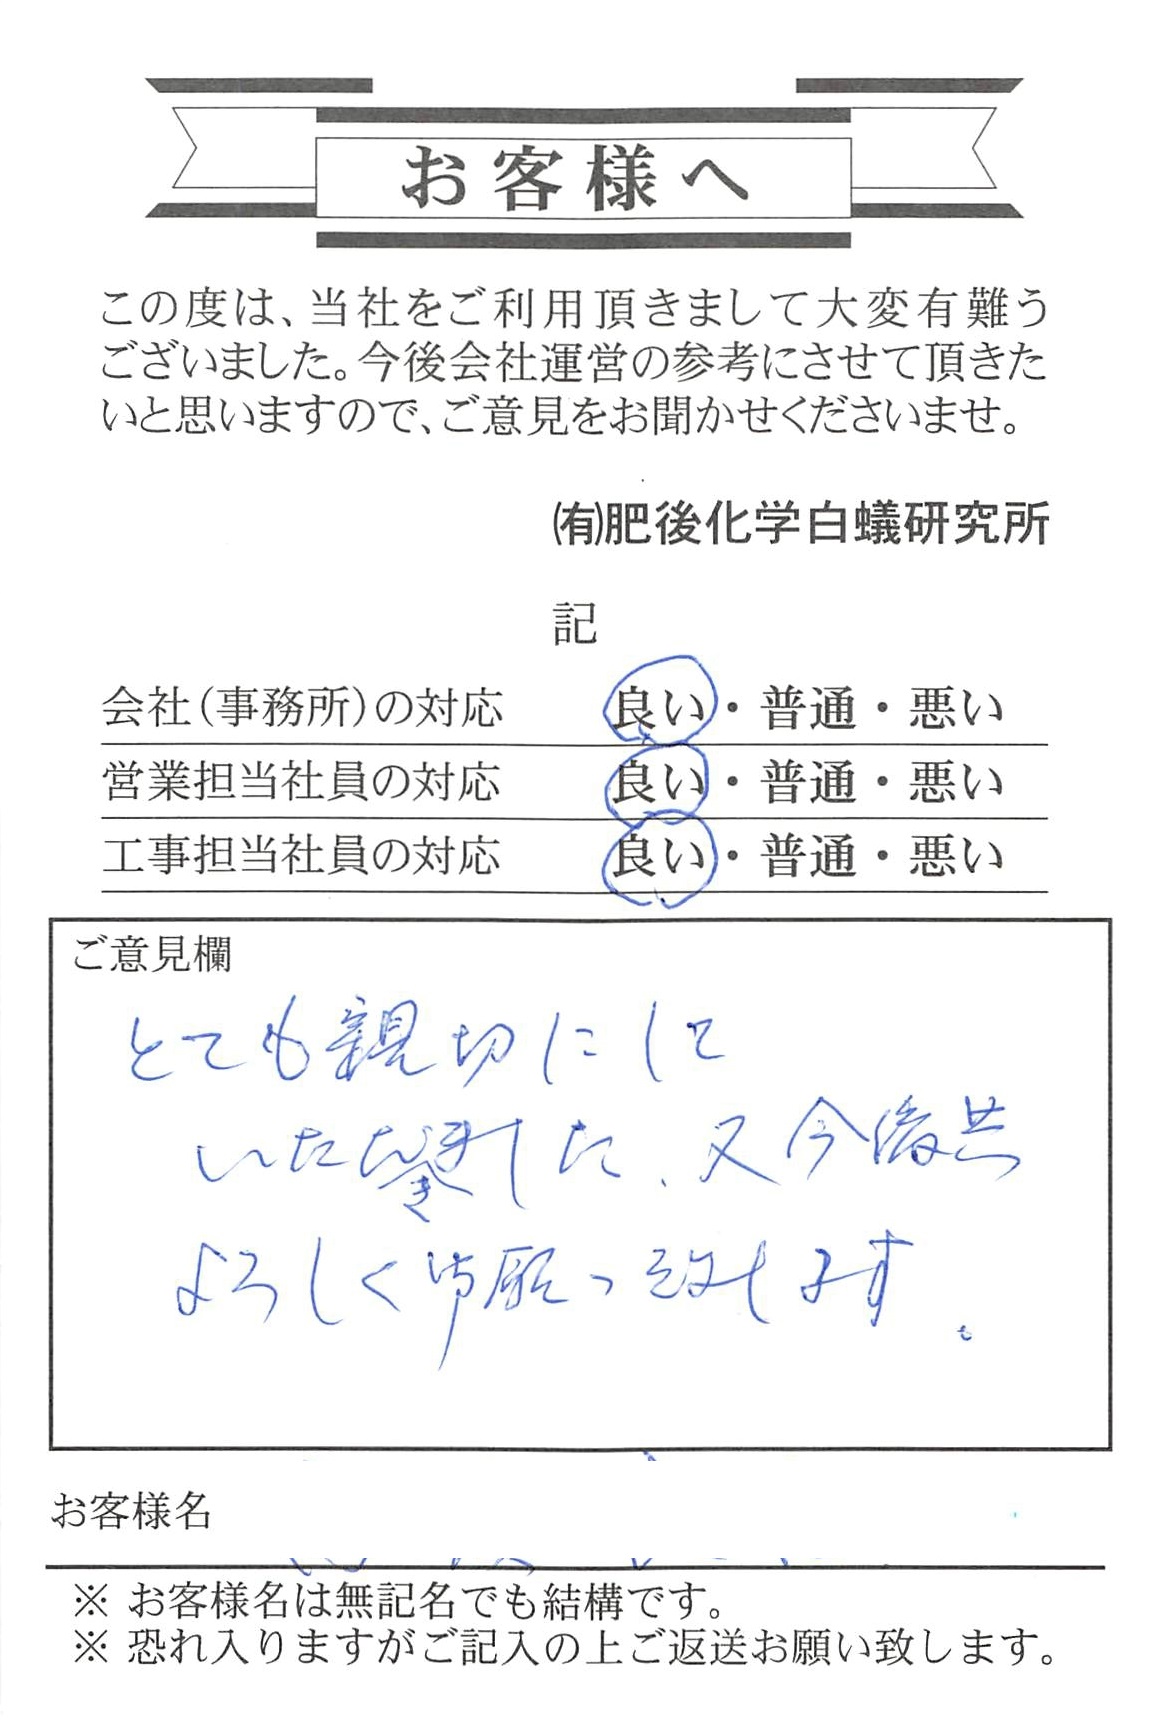 お客様へ
この度は、当社をご利用頂きまして大変有難う
ございました。今後会社運営の参考にさせて頂きた
いと思いますので、ご意見をお聞かせくださいませ。
㈲肥後化学白蟻研究所
記
会社(事務所)の対応 良い・普通・悪い
営業担当社員の対応 良い・普通・悪い
工事担当社員の対応 良い・普通・悪い
ご意見欄
とても親切にして
いただきました、又今後共
よろしく御願い致します。
お客様名
※ お客様名は無記名でも結構です。
※ 恐れ入りますがご記入の上ご返送お願い致します。